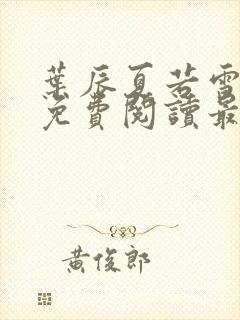 葉辰夏若雪
免費閱讀最
黃俊郎